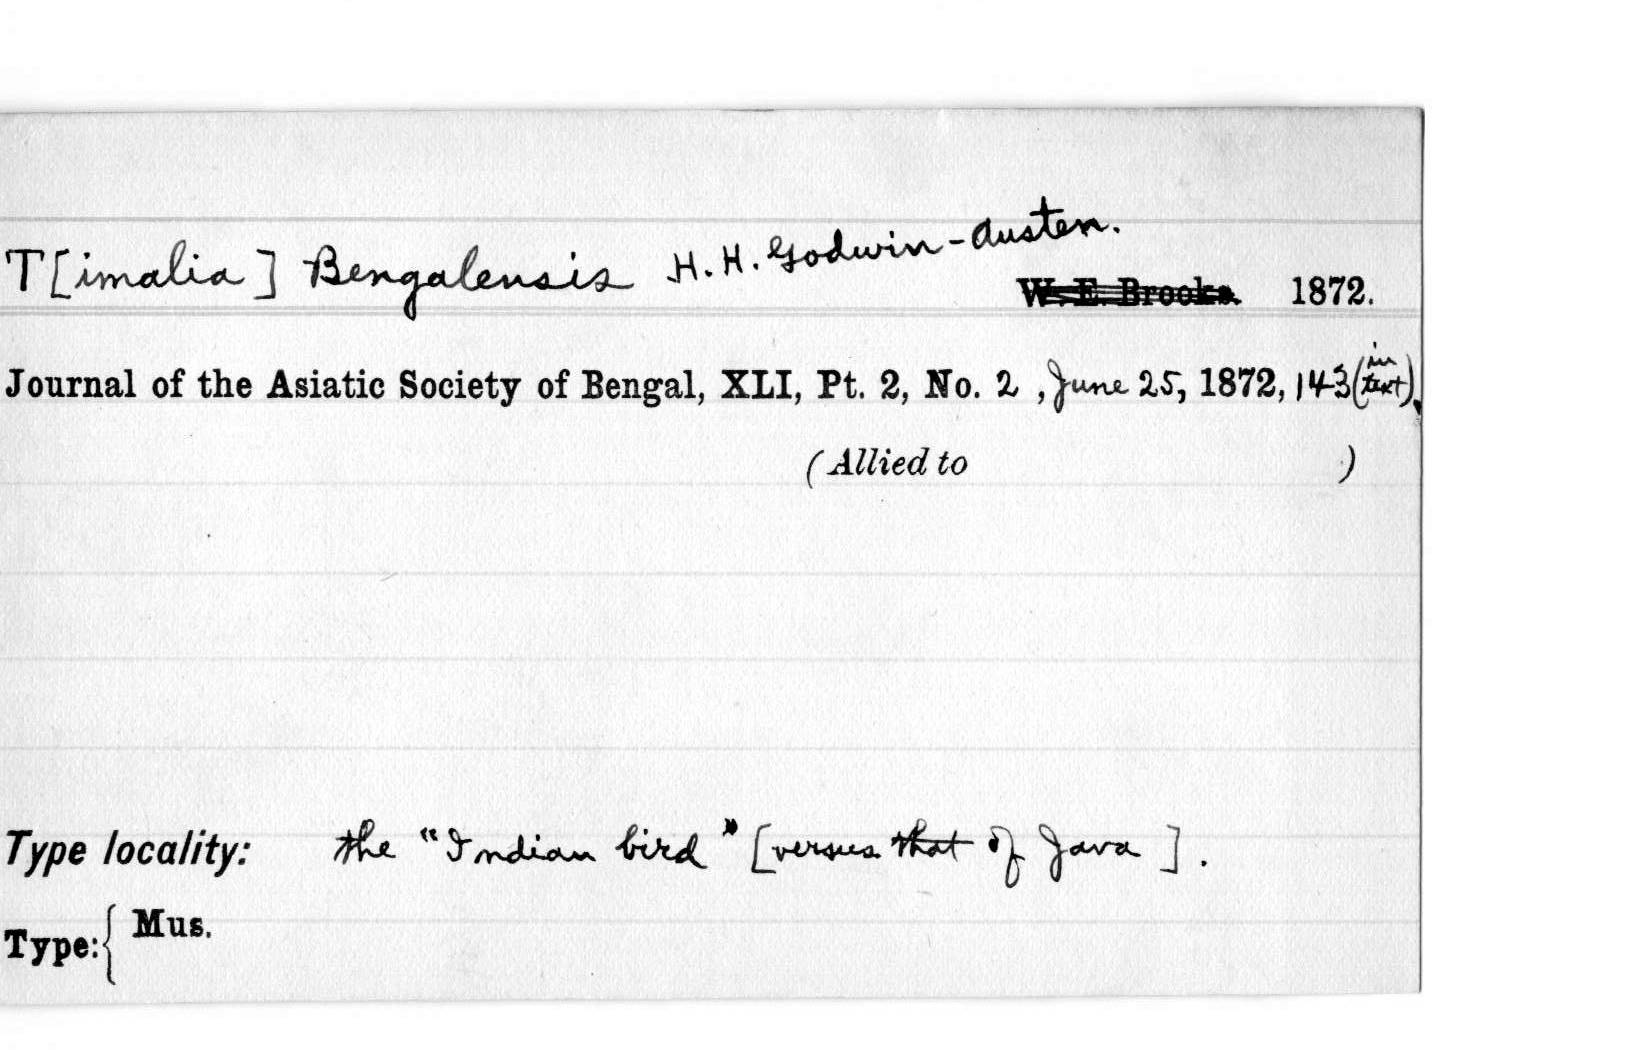 T[imalia] Bengalensis H. H. Godwin-Austen.
W. E. Brooks. 1872.
Journal of the Asiatic Society of Bengal, XLI, Pt. 2, No. 2, June 25, 1872, 143 (in text).
(Allied to )
Type locality: the "Indian bird" [versus that of Java].
Type: { Mus.